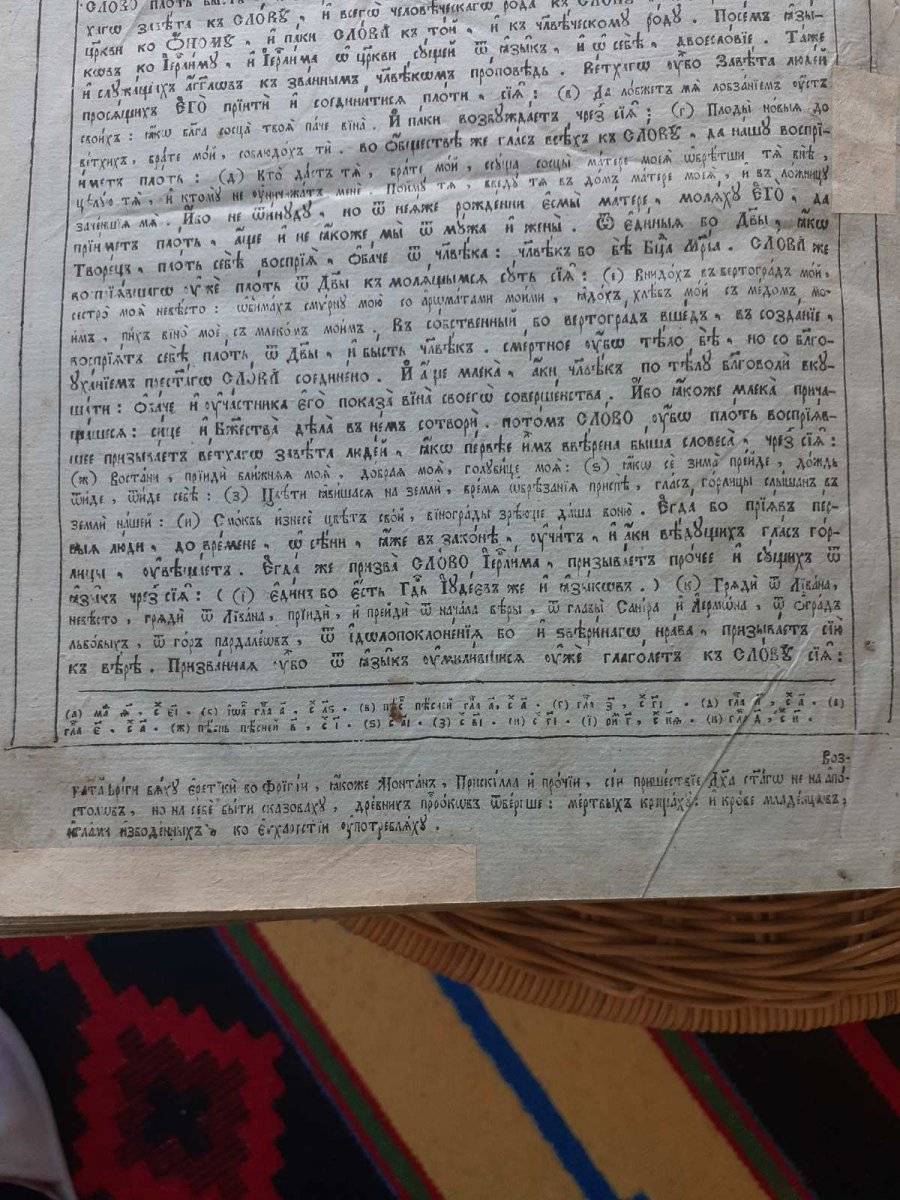 хагѡ завѣта къ СЛОВꙊ , и҆ всегѡ̀ человѣ́ческагѡ ро́да къ
цр҃кви ко Ѻ҆́номꙋ , и҆ па́ки СЛО́ВА къ то́й , и҆ къ чл҃вѣ́ческомꙋ ро́дꙋ . Посе́мъ ꙗ҆зы́-
кѡвъ ко І҆ер҇ли́мꙋ , и҆ І҆ер҇ли́ма ѿ цр҃кви сꙋ́щей ѿ ꙗ҆зы̑къ , и҆ ѡ҆ себѣ̀ , двоесло́вїе . Та́же
и҆ слꙋжа́щихъ а҆́гг҃лѡвъ къ зва́ннымъ чл҃вѣ́кѡмъ про́повѣдь . Ве́тхагѡ ᲂу҆́бо Завѣ́та люде́й
прося́щихъ Е҆ГО̀ прїитѝ и҆ соедини́тися пло́ти , сїѧ̑ : (в) Да лобже́тъ мѧ̀ лобза́нїемъ ᲂу҆́стъ
свои́хъ : ꙗ҆́кѡ бл҃га сосца̀ твоѧ̑ па́че вїна̀ . И҆ па́ки возбꙋжда́етъ чрез̾ сїѧ̑ : (г) Плоды̀ но́выѧ до
ве́тхихъ , бра́те мо́й , соблюдо́хъ тѝ . во Ѻ҆́бществѣ же гла́съ всѣ́хъ къ СЛО́ВꙊ , да на́шꙋ воспрї-
и́метъ пло́ть : (д) Кто̀ да́стъ тѧ̀ , бра́те мо́й , ссꙋ́ща сосцы̀ ма́тере моеѧ̀ ѡ҆брѣ́тши тѧ̀ внѣ̀ ,
цѣлꙋ́ю тѧ̀ , и҆ ктомꙋ̀ не ᲂу҆ничижа́тъ менѐ . Поимꙋ̀ тѧ̀ , введꙋ̀ тѧ̀ въ до́мъ ма́тере моеѧ̀ , и҆ въ ложни́цꙋ
заче́ншїѧ мѧ̀ . И҆́бо не ѿинꙋ́дꙋ , но ѿ неѧ́же рожде́нни є҆смы̀ ма́тере , молѧ́хꙋ Е҆ГО̀ , да
прїи́метъ пло́ть , а҆́ще и҆ не ꙗ҆́коже мы̀ ѿ мꙋ́жа и҆ жены̀ . Ѿ є҆ди́ныѧ бо Дв҃ы , ꙗ҆́кѡ
Творе́цъ , пло́ть себѣ̀ воспрїѧ̀ , Ѻ҆ба́че ѿ чл҃вѣ́ка : чл҃вѣ́къ бо бѣ̀ Бц҃а Мр҃і́а . СЛО́ВА же
во прїѧ́вшагѡ ᲂу҆жѐ пло́ть ѿ Дв҃ы къ молѧ́щымсѧ сꙋ́ть сїѧ̑ : (є) Внидо́хъ въ вертогра́дъ мо́й ,
сестро̀ моѧ̀ невѣ́сто : ѡ҆б̾има́хъ сми́рнꙋ мою̀ со а҆рѡма́тами мои́ми , ꙗ҆до́хъ хлѣ́бъ мо́й съ ме́домъ мо-
и́мъ , пи́хъ вїно̀ моѐ съ млеко́мъ мои́мъ . Въ со́бственный бо вертогра́дъ вше́дъ , въ созда́нїе ,
воспрїѧ́тъ себѣ̀ пло́ть ѿ Дв҃ы , и҆ бы́сть чл҃вѣ́къ . сме́ртное ᲂу҆́бѡ тѣ́ло бѣ̀ , но со бл҃го-
ᲂу҆ха́нїемъ прест҃а́гѡ СЛО́ВА соедине́но . И҆ а҆́ще млека̀ , а҆́ки чл҃вѣ́къ по тѣ́лꙋ бл҃говолѝ вкꙋ-
ша́ти : Ѻ҆ба́че и҆ ᲂу҆ча́стника є҆гѡ̀ показа̀ вїна̀ своегѡ̀ соверше́нства . И҆́бо ꙗ҆́коже млека̀ прича-
ща́шесѧ : си́це и҆ Бж҃ества̀ дѣла̀ въ не́мъ сотворѝ . пото́мъ СЛО́ВО ᲂу҆́бѡ пло́ть воспрїѧ́в-
шее призыва́етъ ве́тхагѡ завѣ́та люде́й , ꙗ҆́кѡ пе́рвѣе и҆̀мъ ввѣ́рена бы́ша словеса̀ , чрез̾ сїѧ̑ :
(ж) Воста́ни , прїидѝ бли́жнѧѧ моѧ̀ , до́браѧ моѧ̀ , голꙋби́це моѧ̀ : (ѕ) ꙗ҆́кѡ сѐ зима̀ пре́йде , до́ждь
ѿи́де , ѿи́де себѣ̀ : (з) Цвѣ́ти ꙗ҆ви́шасѧ на землѝ , вре́мѧ ѡ҆брѣ́занїѧ приспѣ̀ , гла́съ го́рлицы слы́шанъ въ
землѝ на́шей : (и) Смо́квь и҆знесѐ цвѣ́тъ сво́й , вїногра́ды зрѣ́юще да́ша воню̀ . Е҆гда̀ бо прїѧ́въ пе́р-
выѧ лю́ди , до вре́мене , ѡ҆ сѣ́ни , ꙗ҆́же въ зако́нѣ , ᲂу҆чи́тъ , и҆ а҆́ки вѣ́дꙋщихъ гла́съ го́р-
лицы , ᲂу҆вѣщава́етъ . Е҆гда́ же призва̀ СЛО́ВО І҆ер҇ли́ма , призыва́етъ про́чее и҆ сꙋ́щихъ ѿ
ꙗ҆зы̑къ чрез̾ сїѧ̑ : ( (і) є҆ди́нъ бо є҆́сть Гд҇ь І҆ꙋде́євъ же и҆ ꙗ҆зы́кѡвъ . ) (к) Грѧдѝ ѿ Лїва́на ,
невѣ́сто , грѧдѝ ѿ Лїва́на , прїидѝ , и҆ прейдѝ ѿ нача́ла вѣ́ры , ѿ главы̀ Сані́ра и҆ А҆ермѡ́на , ѿ ѻ҆гра́дъ
льво́выхъ , ѿ го́ръ пардале́ѡвъ , ѿ і҆дѡлопоклоне́нїѧ бо и҆ ѕвѣри́нагѡ нра́ва , призыва́етъ сїѝ
къ вѣ́рѣ . При́званнаѧ ᲂу҆́бо ѿ ꙗ҆зы̑къ ᲂу҆мили́вшисѧ ᲂу҆жѐ глаго́летъ къ СЛО́ВꙊ сїѧ̑ :
Воз-
бѧ́хꙋ є҆рети́цы во Фрїгі́и , ꙗ҆́коже Монта́нъ , Приски́лла и҆ про́чїи , сїѝ прише́ствїе Дх҃а ст҃а́гѡ не на а҆пⷭ҇-
столѡвъ , но на себѐ бы́ти сказовахꙋ , дре́внихъ прⷪ҇ро́кѡвъ ѿве́ргше : ме́ртвыхъ креща́хꙋ : и҆ кро́ве младе́нцѡвъ ,
и҆гла́ми и҆зборе́нныхъ ко є҆ѵхарі́стїи ᲂу҆потреблѧ́хꙋ .